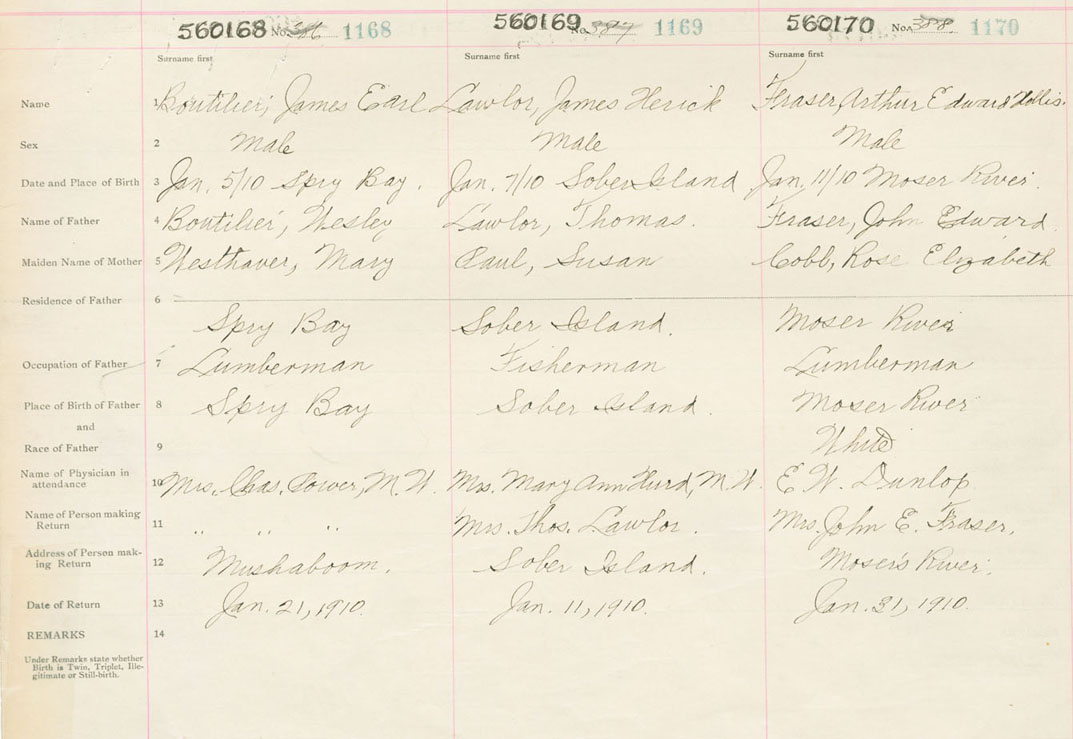 560168 No. 386 1168 560169 No. 387 1169 560170 No. 388 1170
Surname first Surname first Surname first
Name 1 Boutilier, James Earl Lawlor, James Herick Fraser, Arthur Edward Hollis.
Sex 2 Male Male Male
Date and Place of Birth 3 Jan. 5/10 Spry Bay. Jan. 7/10 Sober Island Jan. 11/10 Moser River.
Name of Father 4 Boutilier, Wesley Lawlor, Thomas. Fraser, John Edward.
Maiden Name of Mother 5 Westhaver, Mary Paul, Susan Cobb, Rose Elizabeth
Residence of Father 6
Spry Bay Sober Island. Moser River
Occupation of Father 7 Lumberman Fisherman Lumberman
Place of Birth of Father 8 Spry Bay Sober Island. Moser River
and
Race of Father 9 White
Name of Physician in
attendance 10 Mrs. Chas. Power, M.W. Mrs. Mary Ann Hurd, M.W. E W. Dunlop
Name of Person making
Return 11 " " " Mrs. Thos. Lawlor. Mrs. John E. Fraser.
Address of Person mak-
ing Return 12 Mushaboom. Sober Island. Moser's River.
Date of Return 13 Jan. 21, 1910. Jan. 11, 1910. Jan. 31, 1910.
REMARKS 14
Under Remarks state whether
Birth is Twin, Triplet, Ille-
gitimate or Still-birth.